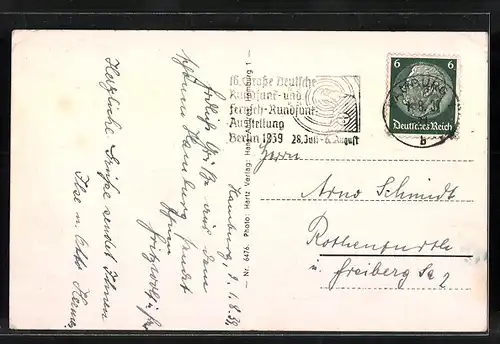 Herzliche Grüße sendet Ihnen
Ilse u. Otto
Hamburg d. 1.8.39.
Grüße aus dem
schönen Hamburg sendet
Ihnen
Nr. 6476. Photo: Hans Hartz Verlag, Hamburg 1
16. Große Deutsche
Rundfunk- und
Fernseh-Rundfunk-
Ausstellung
Berlin 1939 28. Juli - 6. August
6 6
Deutsches Reich
b
Herrn
Arno Schmidt
Rothenfurth
ü. Freiberg Sa 2